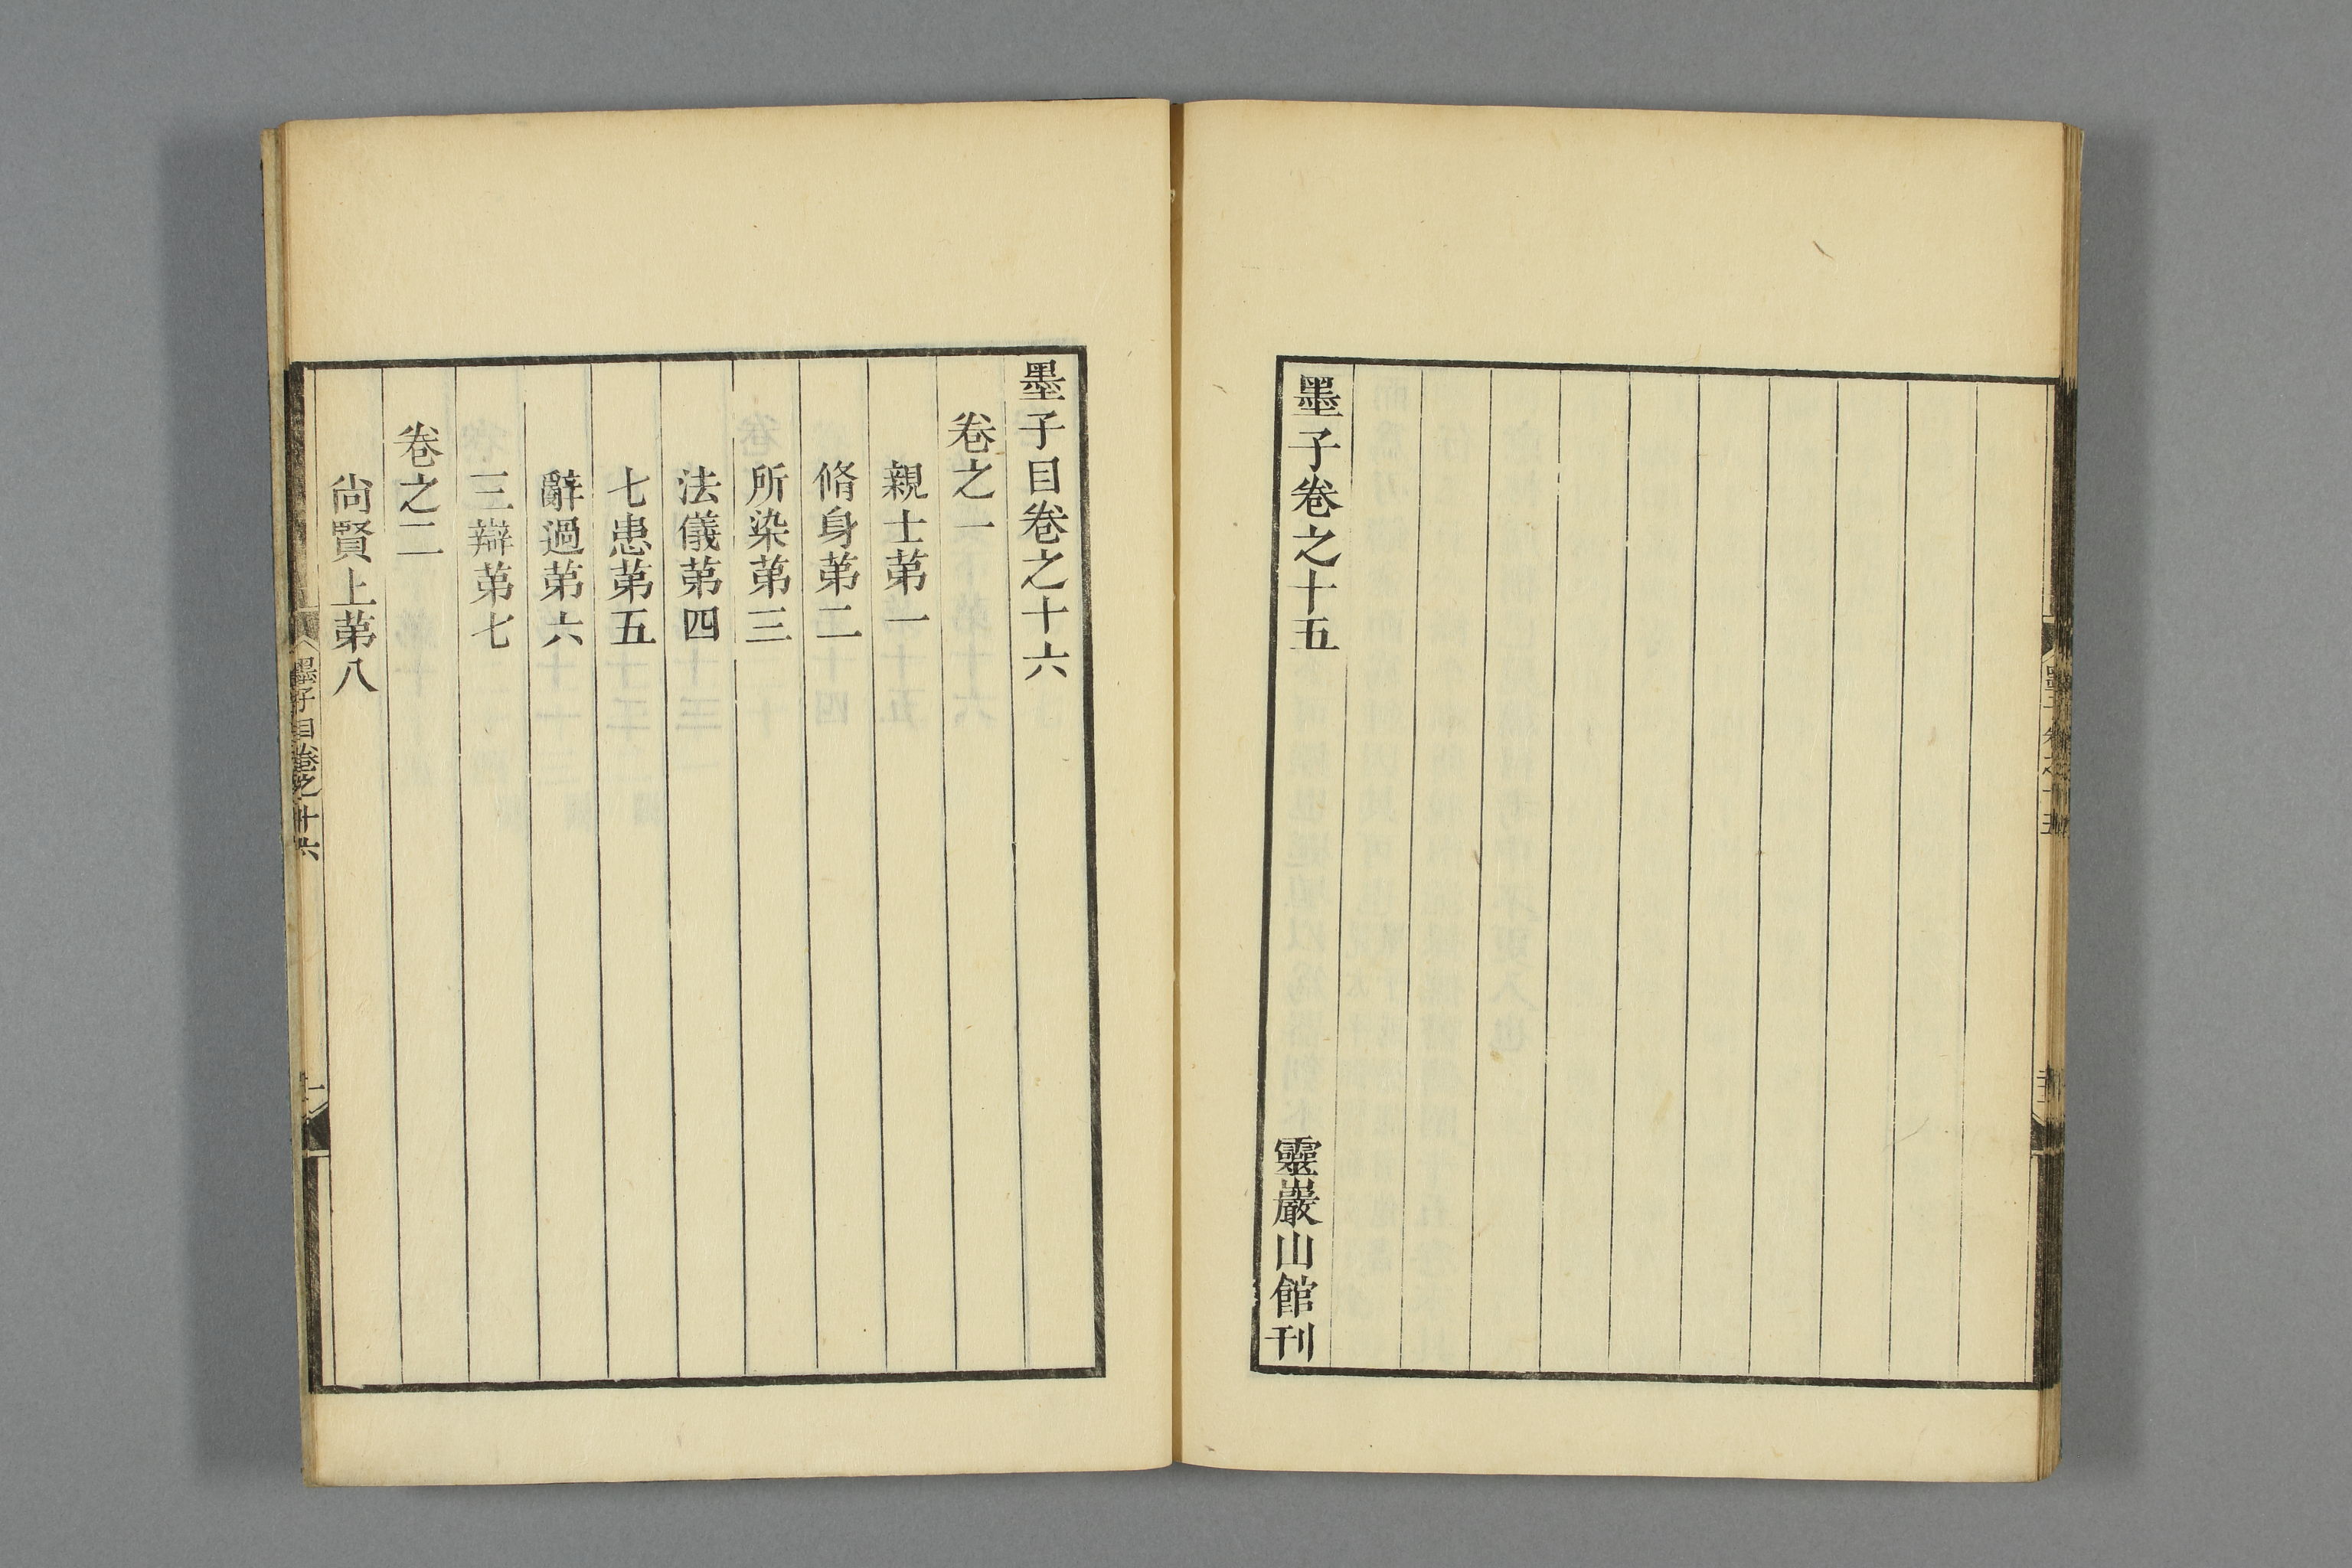 墨子卷之十五
靈巖山館刊
墨子目卷之十六
卷之一
親士苐一
脩身苐二
所染苐三
法儀苐四
七患苐五
辭過苐六
三辯苐七
卷之二
尙賢上苐八
墨子目卷之十六